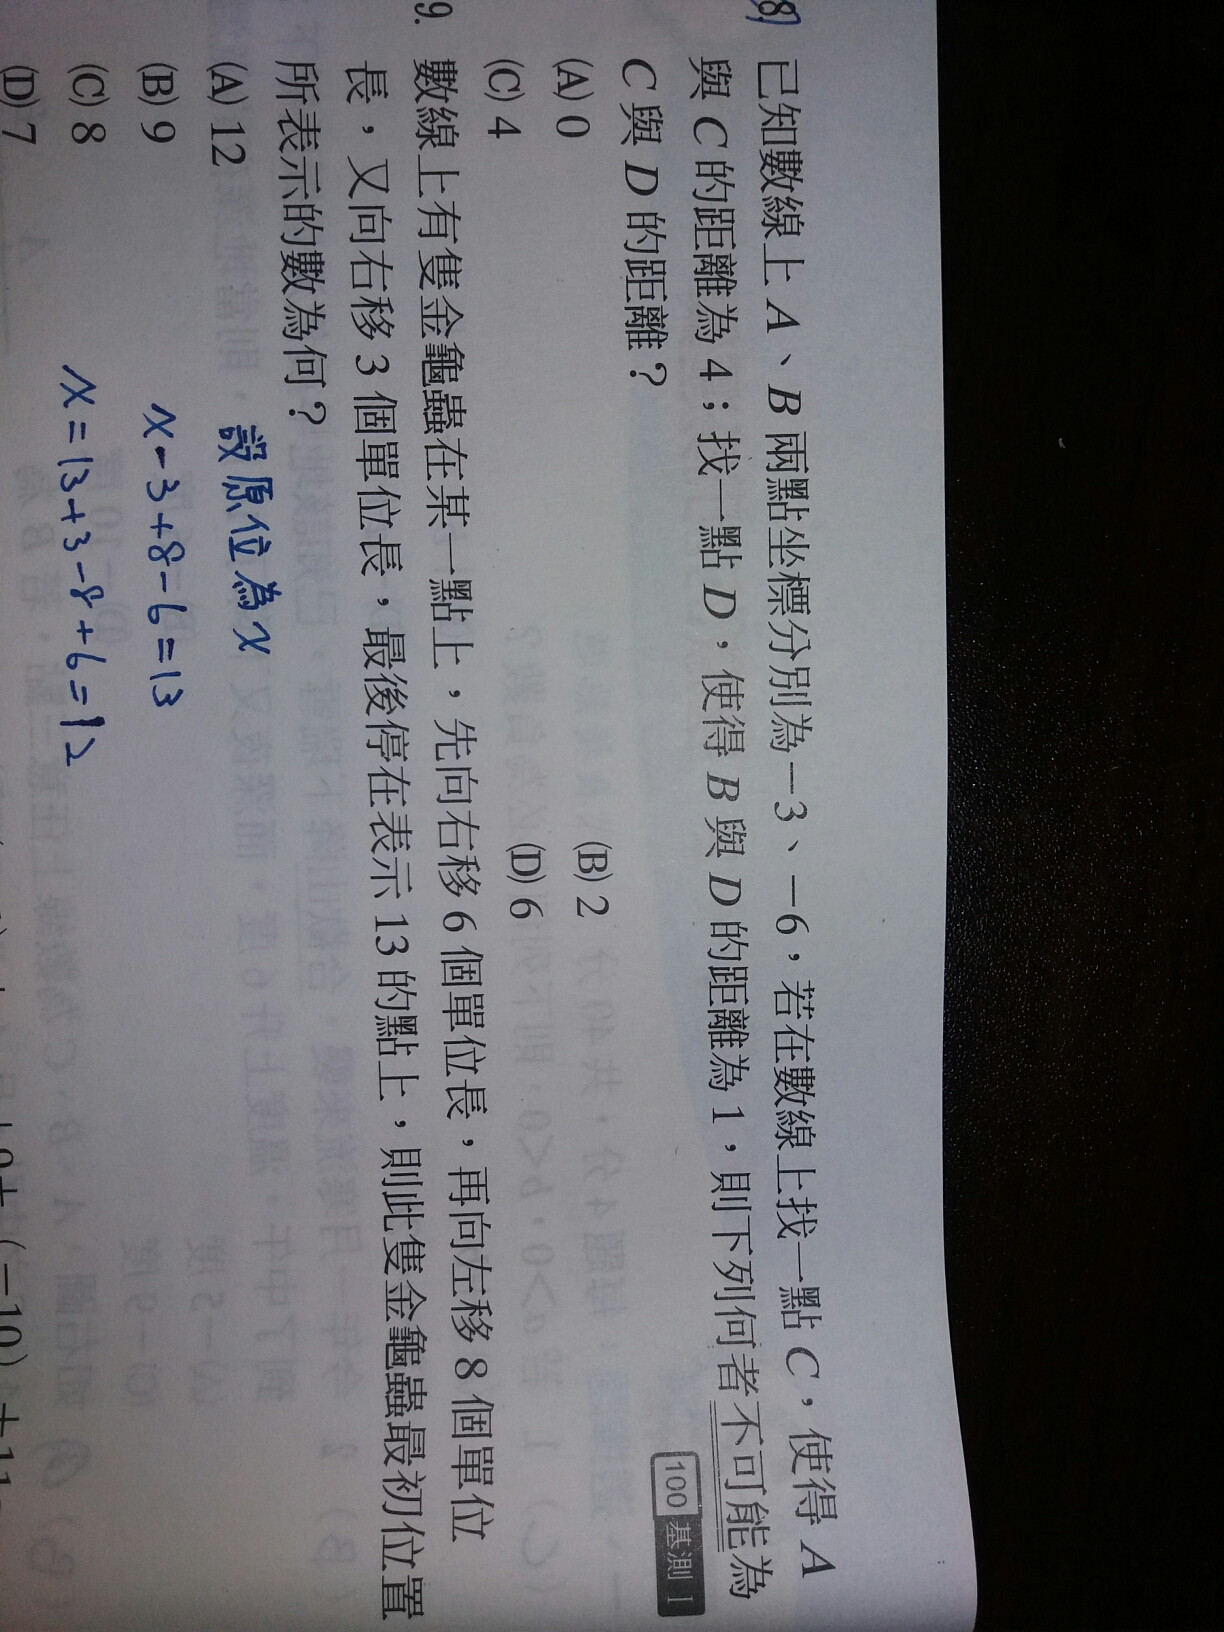 8.
已知數線上 A、B 兩點坐標分別為－3、－6，若在數線上找一點 C，使得 A
與 C 的距離為 4；找一點 D，使得 B 與 D 的距離為 1，則下列何者不可能為
C 與 D 的距離？
100 基測 I
(A) 0 (B) 2
(C) 4 (D) 6
9. 數線上有隻金龜蟲在某一點上，先向右移 6 個單位長，再向左移 8 個單位
長，又向右移 3 個單位長，最後停在表示 13 的點上，則此隻金龜蟲最初位置
所表示的數為何？
(A) 12
設原位為x
(B) 9
x-3+8-6=13
(C) 8
x=13+3-8+6=12
(D) 7